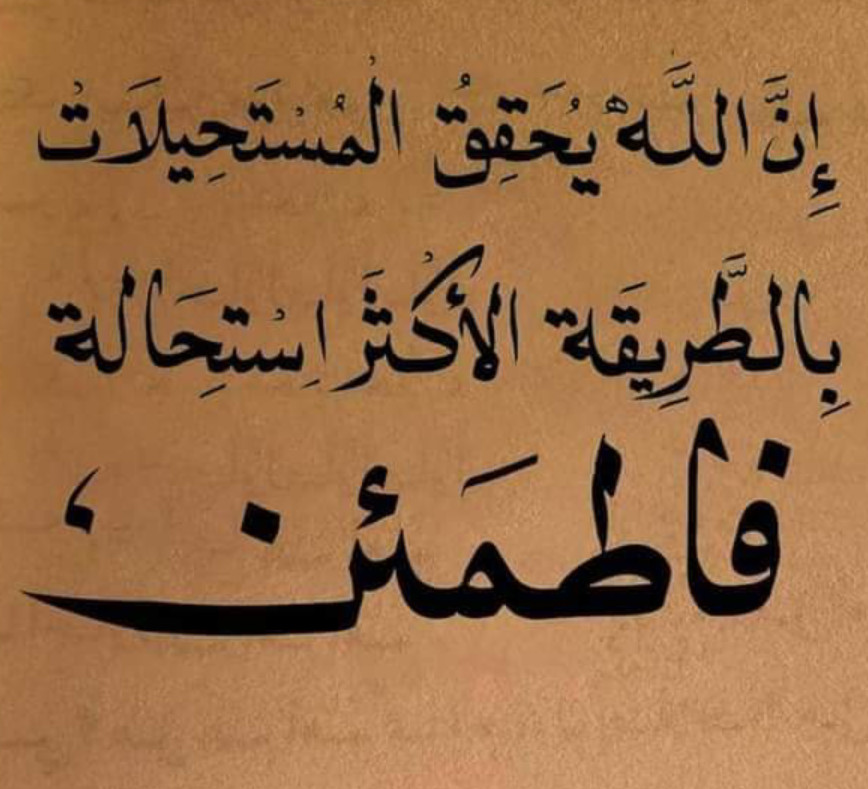 إِنَّ اللَّهَ يُحَقِقُ الْمُسْتَحِيلَاتْ
بِالطَّرِيقَة الأكْثَرَ اِسْتِحَالة
فاطمَئن،